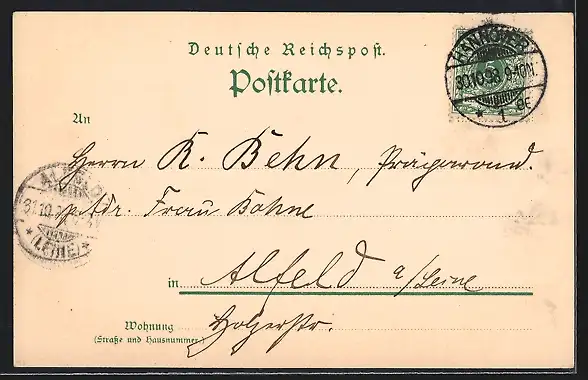 Deutsche Reichspost.
Postkarte.
HANNOVER
30.10.98. 9-10N.
* 1
5
An
Herrn K. Behn,
ALFELD
31.10.
* (LEINE) *
p. Adr. Frau Bohne
in Alfeld a/Leine
Wohnung
(Straße und Hausnummer)